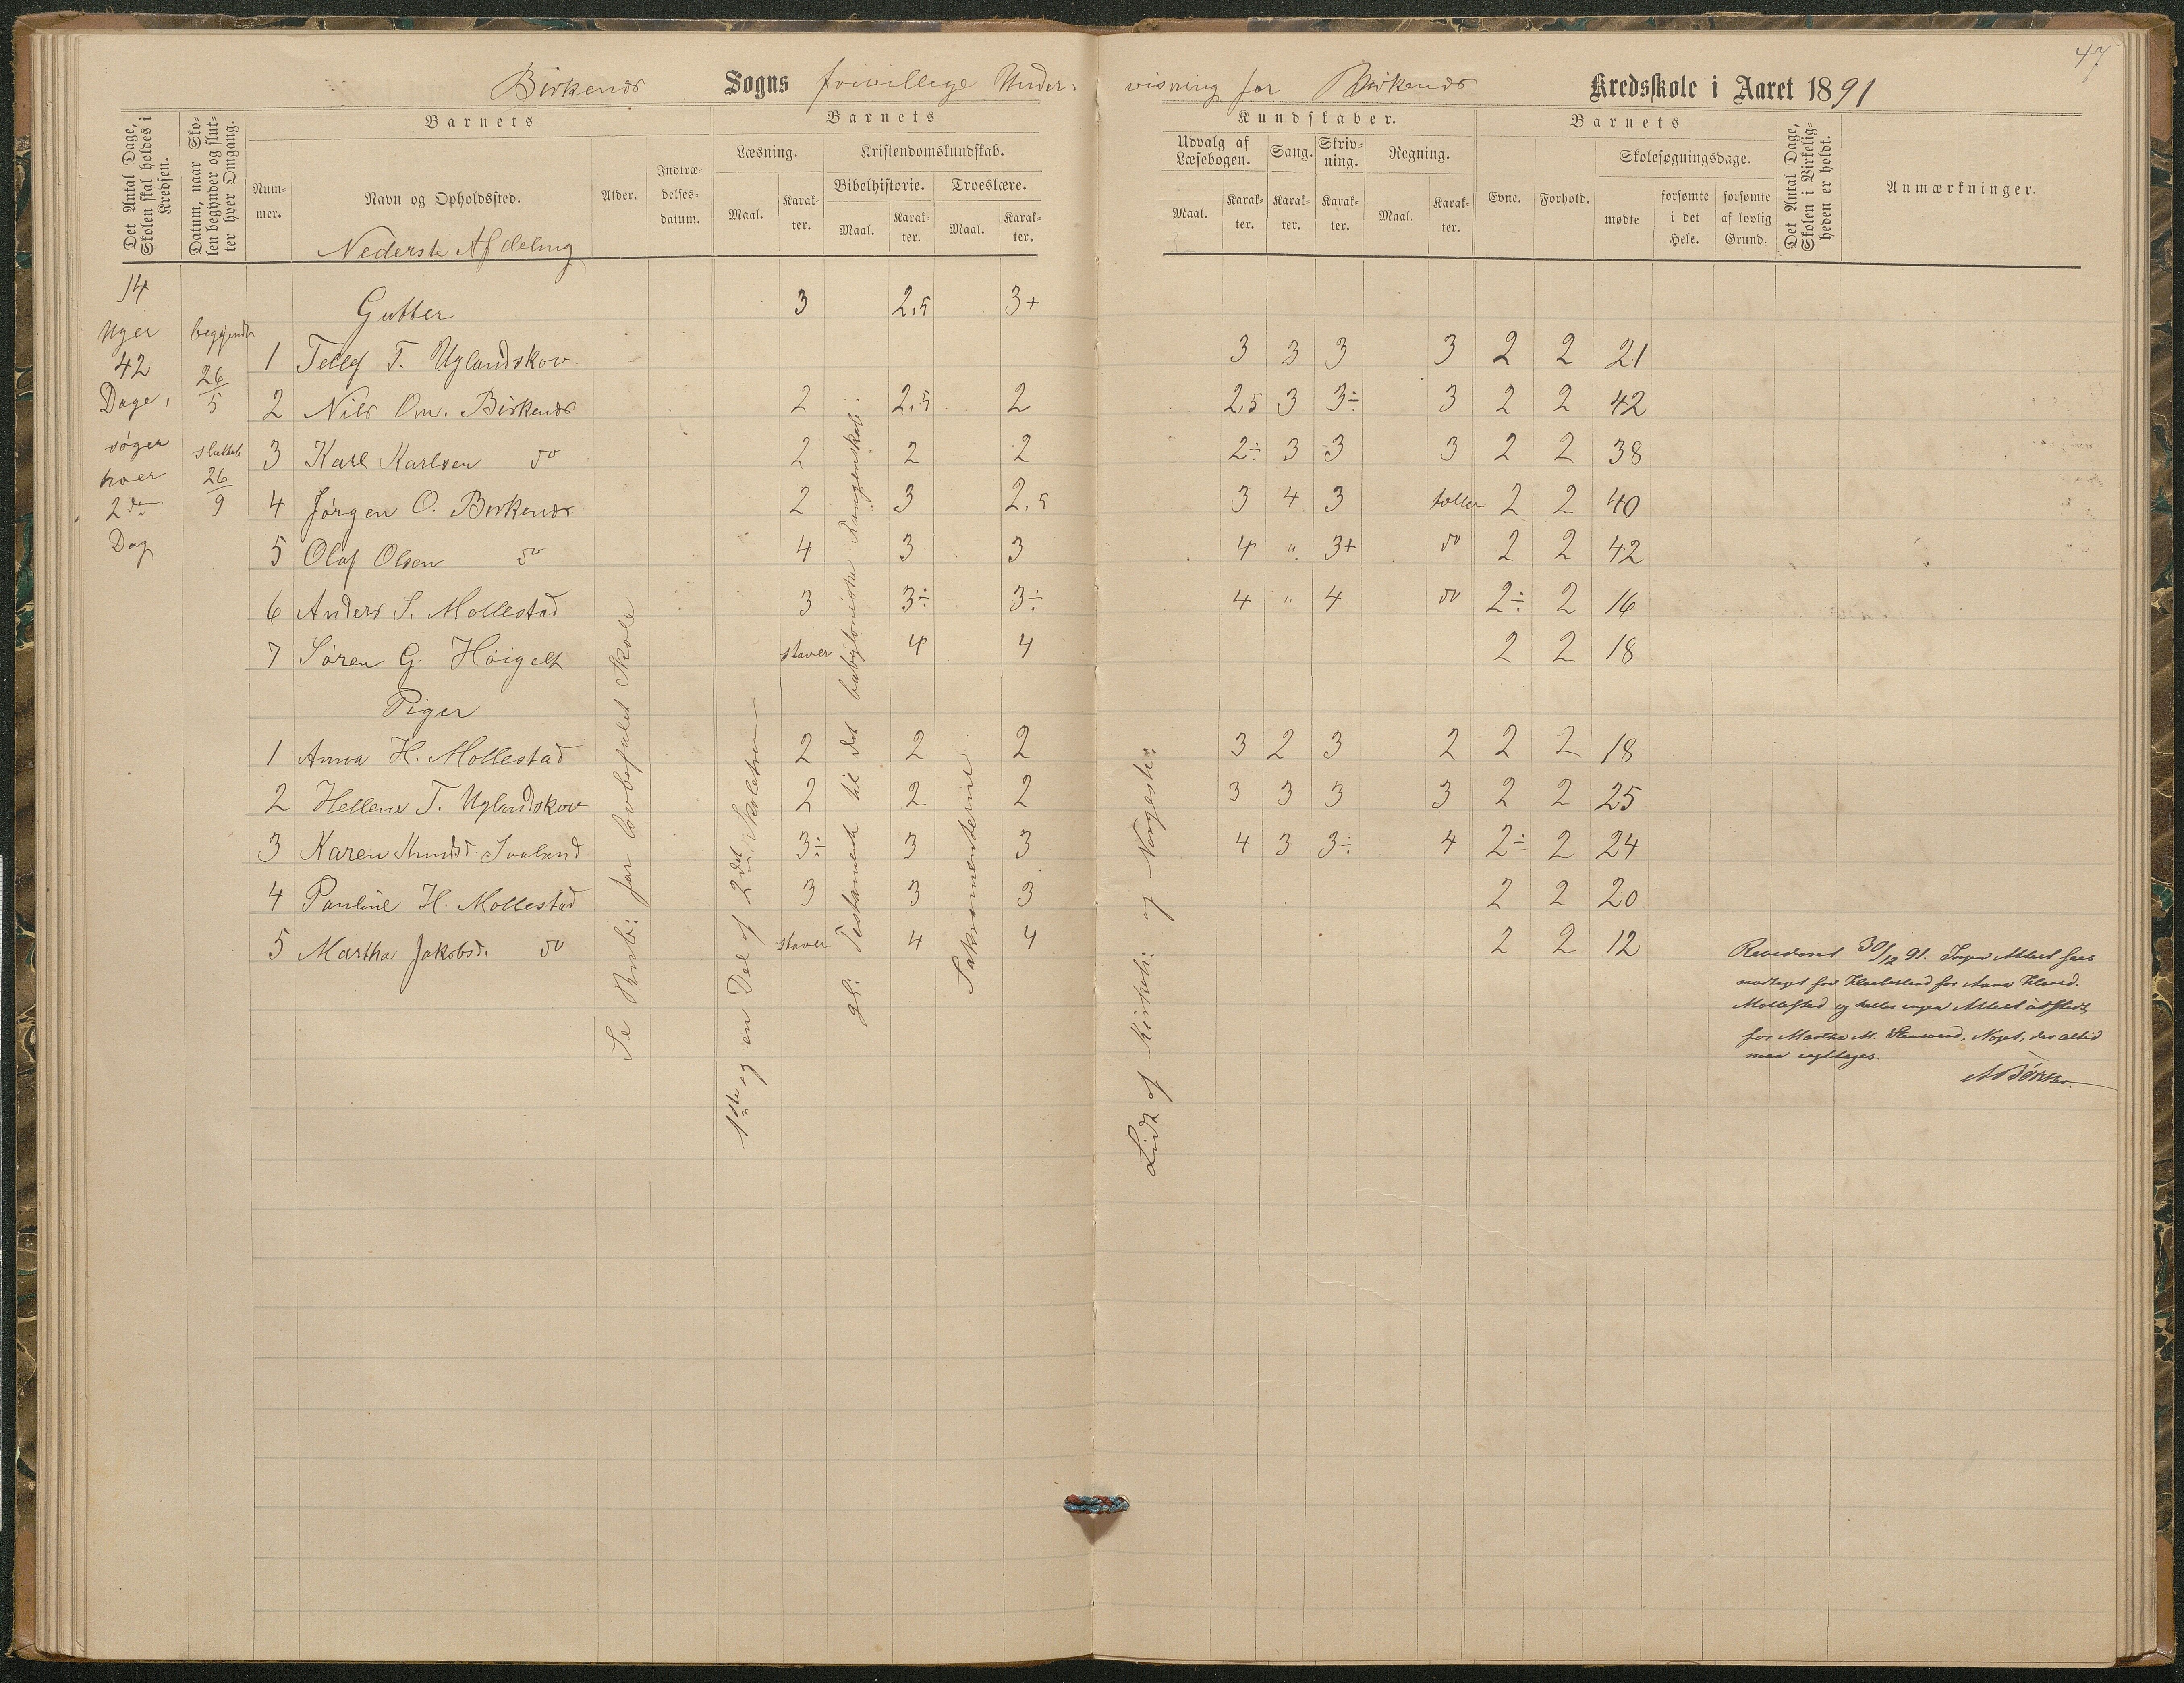 47
Birkenæs Sogns frivillige Under-
visning for Birkenæs Kredsskole i Aaret 1891
Det Antal Dage, Skolen skal holdes i Kredsen.
Datum, naar Skolen begynder og slutter hver Omgang.
Barnets
Nummer.
Navn og Opholdssted.
Nederste Afdeling
Alder.
Indtrædelsesdatum.
Barnets
Læsning.
Maal.
Karakter.
Kristendomskundskab.
Bibelhistorie.
Maal.
Karakter.
Troeslære.
Maal.
Karakter.
Kundskaber.
Udvalg af Læsebogen.
Maal.
Karakter.
Sang.
Karakter.
Skrivning.
Karakter.
Regning.
Maal.
Karakter.
Barnets
Evne.
Forhold.
Skolesøgningsdage.
mødte
forsømte i det Hele.
forsømte af lovlig Grund.
Det Antal Dage, Skolen i Virkeligheden er holdt.
Anmærkninger.
14
Uger
42
Dage,
søger
hver
2den
Dag
begyndte
26/5
sluttet
26/9
Gutter 3 2,5 3+
1 Tellef T. Uglandskov 3 3 3 3 2 2 21
2 Nils Om. Birkenæs 2 2,5 2 2,5 3 3÷ 3 2 2 42
3 Karl Karlsen do 2 2 2 2÷ 3 3 3 2 2 38
4 Jørgen O. Birkenæs 2 3 2,5 3 4 3 tæller 2 2 40
5 Olaf Olsen do 4 3 3 4 " 3+ do 2 2 42
6 Anders S. Mollestad 3 3÷ 3÷ 4 " 4 do 2÷ 2 16
7 Søren G. Høigelt staver 4 4 2 2 18
Piger
1 Anna H. Mollestad 2 2 2 3 2 3 2 2 2 18
2 Hellene T. Uglandskov 2 2 2 3 3 3 3 2 2 25
3 Karen Knudsd 3÷ 3 3 4 3 3÷ 4 2÷ 2 24
4 Pauline H. Mollestad 3 3 3 2 2 20
5 Martha Jakobsd. do staver 4 4 2 2 12
Se Rub: for lovbefalet Skole
1ste og en Del af 2det Skoletrin
gl: Testamente til det babyloniske Fangenskab.
Sakramenterne
Lidt af Kirkeh: og Norgesh:
Revideret 30/12 91. Ingen Attest sees
modtaget for
Mollestad og heller ingen Attest udstedt
for Martha M. Noget, der altid
maa iagttages.